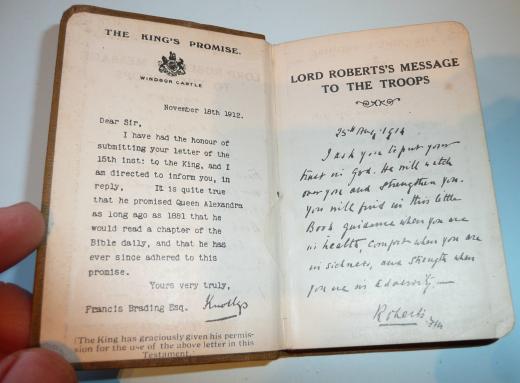 THE KING'S PROMISE.
WINDSOR CASTLE
November 18th 1912.
Dear Sir,
I have had the honour of
submitting your letter of the
15th inst: to the King, and I
am directed to inform you, in
reply, It is quite true
that he promised Queen Alexandra
as long ago as 1881 that he
would read a chapter of the
Bible daily, and that he has
ever since adhered to this
promise.
Yours very truly,
Francis Brading Esq. Knollys
(The King has graciously given his permis-
sion for the use of the above letter in this
Testament.
LORD ROBERTS'S MESSAGE
TO THE TROOPS
25th Aug. 1914
I ask you to put your
trust in God. He will watch
over you and strengthen you.
You will find in this little
Book guidance when you are
in health, comfort when you are
in sickness, and strength when
you are in adversity—
Roberts FM